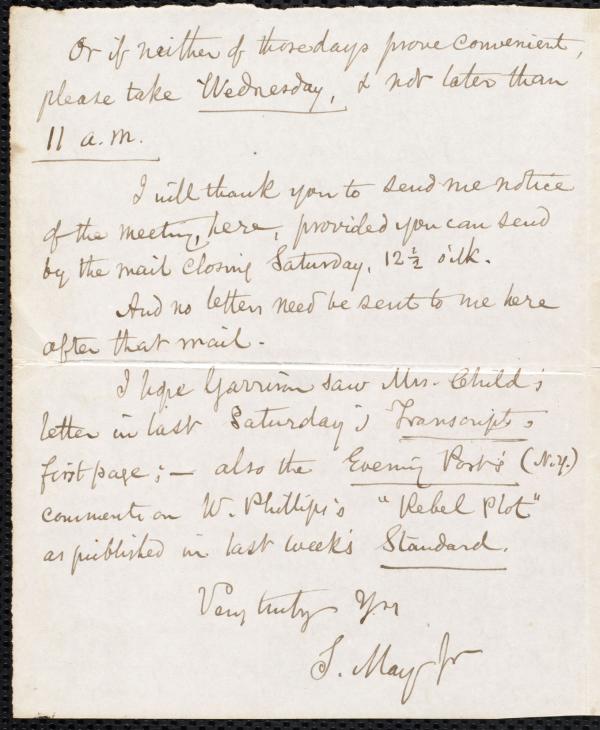 Or if neither of those days prove convenient,
please take Wednesday, & not later than
11 a.m.
I will thank you to send me notice
of the meeting, here, provided you can send
by the mail closing Saturday, 12 ½ o'clk.
And no letters need be sent to me here
after that mail.
I hope Garrison saw Mrs. Child's
letter in last Saturday's Transcript,
first page; — also the Evening Post's (N.Y.)
comments on W. Phillips's "Rebel Plot"
as published in last week's Standard.
Very truly Yrs
S. May Jr